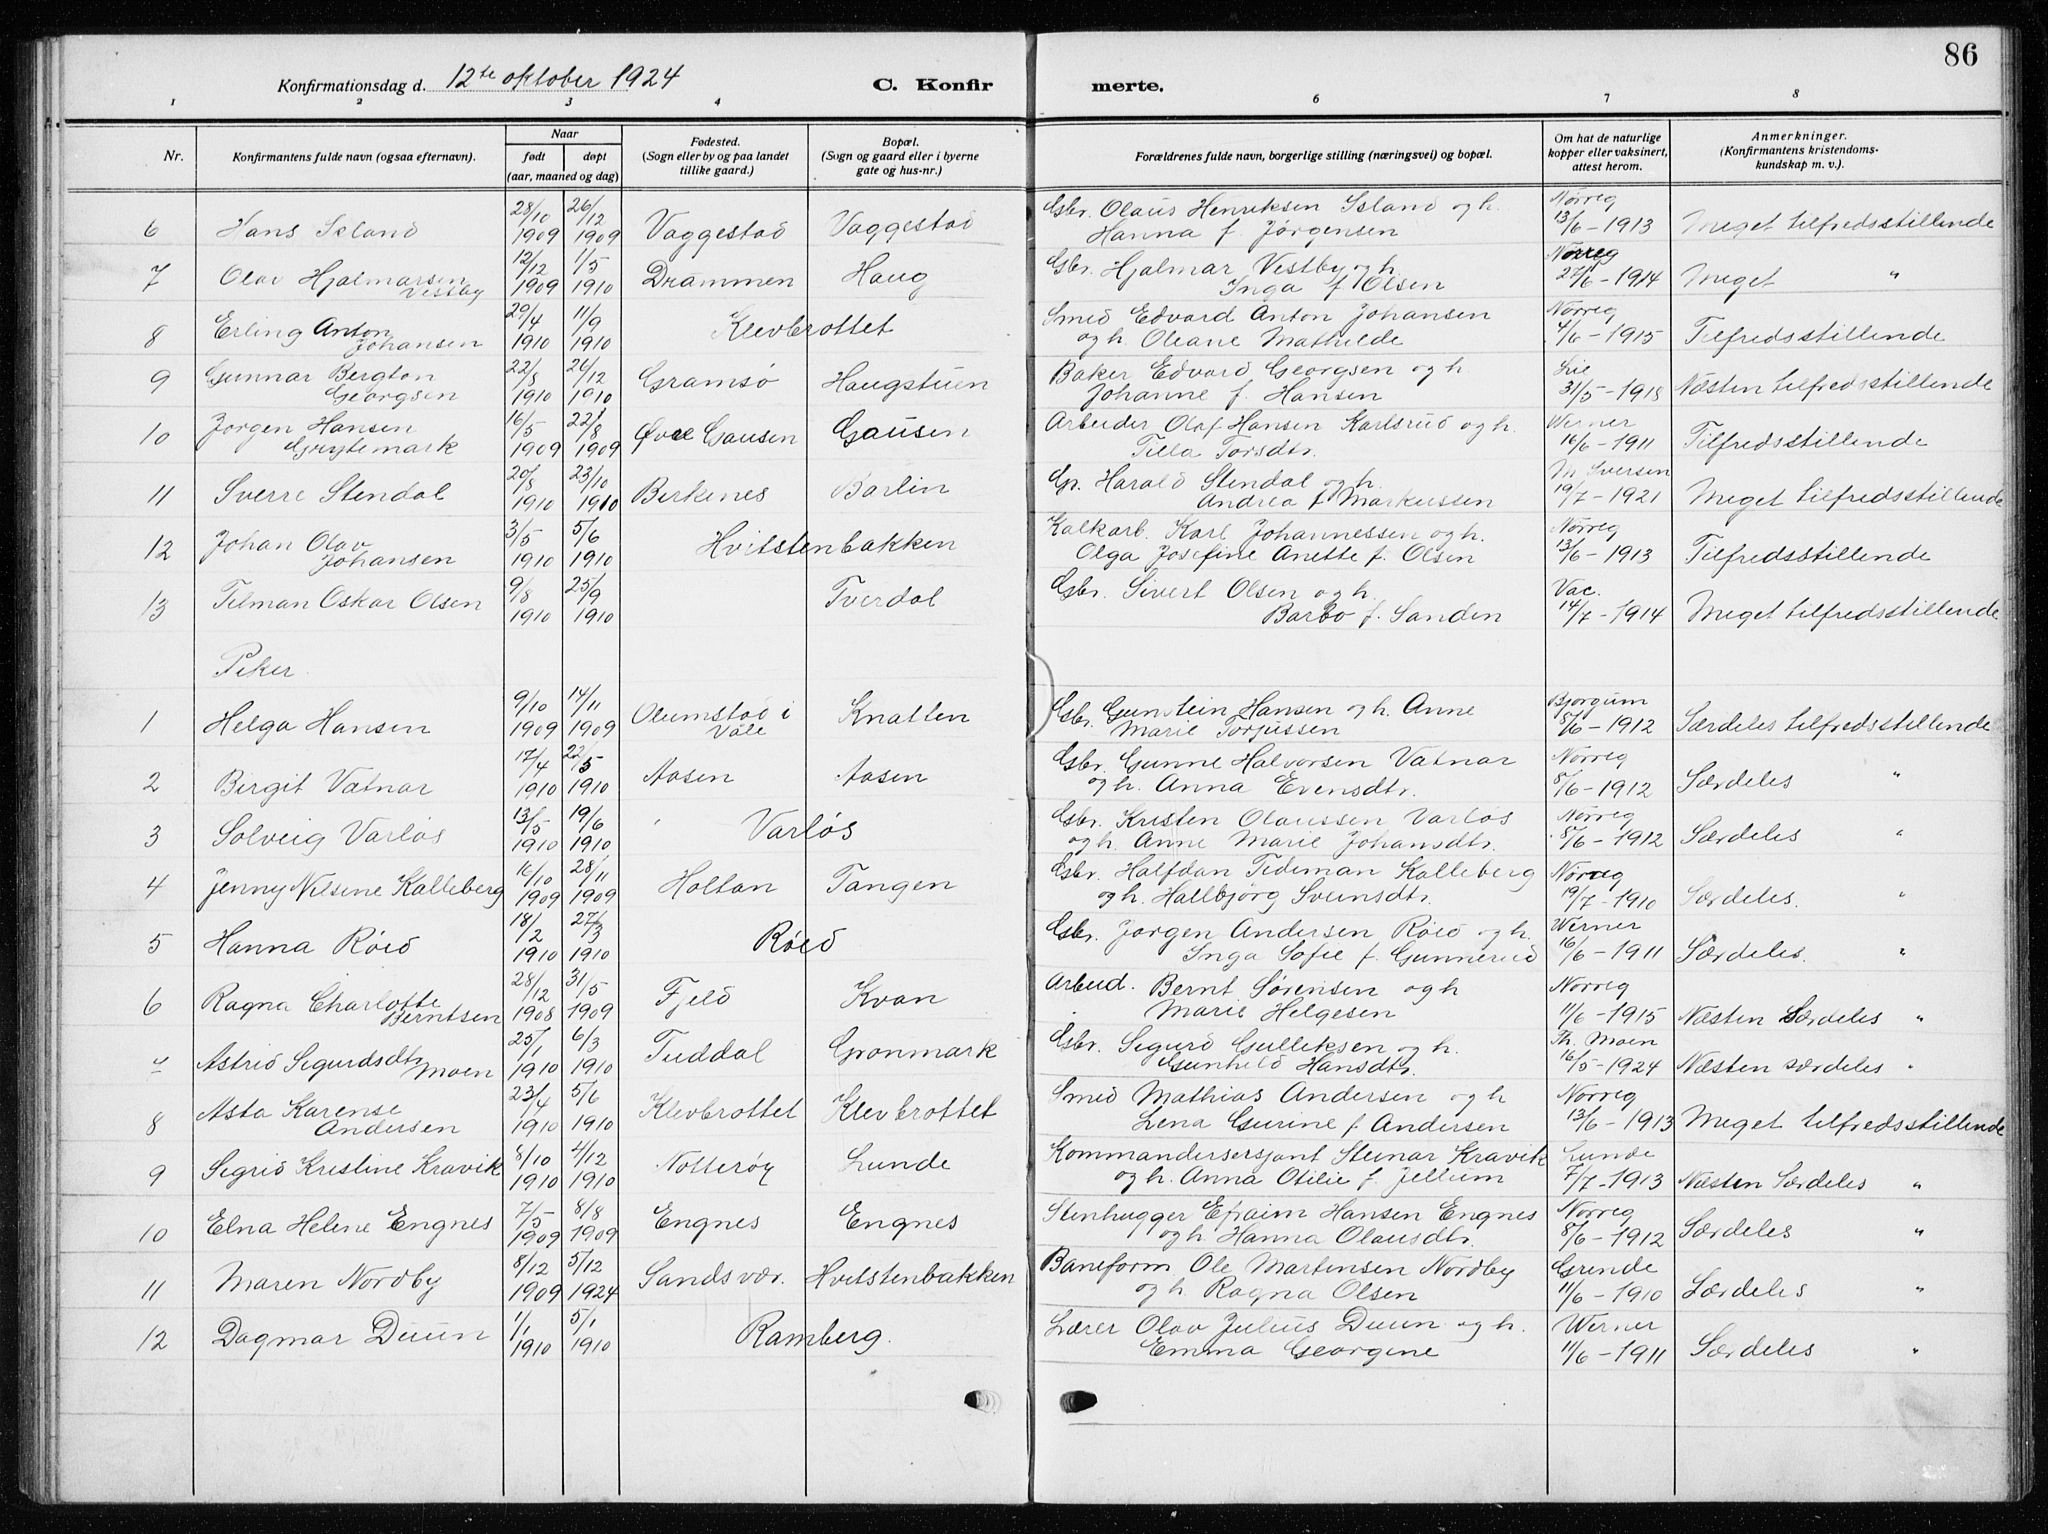 86
Konfirmationsdag d. 12te oktober 1924
C. Konfir merte.
1 2 3 4 6 7 8
Nr.
Konfirmantens fulde navn (ogsaa efternavn).
Naar
født døpt
(aar, maaned og dag)
Fødested.
(Sogn eller by og paa landet
tillike gaard.)
Bopæl.
(Sogn og gaard eller i byerne
gate og hus-nr.)
Forældrenes fulde navn, borgerlige stilling (næringsvei) og bopæl.
Om hat de naturlige
kopper eller vaksinert,
attest herom.
Anmerkninger.
(Konfirmantens kristendoms-
kundskap m. v.).
28/10 26/12 Gbr. Olaus Henriksen Island og h. Nørreg
6 Hans Island 1909 1909 Vaggestad Vaggestad Hanna f. Jørgensen 13/6 - 1913 Meget tilfredsstillende
12/12 1/5 Gbr. Hjalmar Vestby og h. Nørreg
7 Olav Hjalmarsen Vestby 1909 1910 Drammen Haug Inga f Olsen 27/6 - 1914 Meget "
29/4 11/9 Smed Edvard Anton Johansen Nørreg
8 Erling Anton Johansen 1910 1910 Klevbrottet og h. Oleane Mathilde 4/6 - 1915 Tilfredsstillende
22/8 26/12 Baker Edvard Georgsen og h Lie
9 Gunnar Bergton Georgsen 1910 1910 Gramsø Haugstuen Johanne f. Hansen 31/5 - 1918 Næsten tilfredsstillende
16/5 22/8 Arbeider Olaf Hansen Karlsrud og h. Werner
10 Jørgen Hansen Grytemark 1909 1909 Øvre Gausen Gausen Tilla Torsdtr. 16/6 - 1911 Tilfredsstillende
20/8 23/10 Gp. Harald Stendal og h. M Sversen
11 Sverre Stendal 1910 1910 Birkenes Barlin Andrea f Markussen 19/7 - 1921 Meget tilfredsstillende
3/5 5/6 Kalkarb. Karl Johannessen og h. Nørreg
12 Johan Olav Johansen 1910 1910 Hvitstenbakken Olga Josefine Anette f. Olsen 13/6 - 1913 Tilfredsstillende
9/8 25/9 Gbr. Sivert Olsen og h. Vac.
13 Tilman Oskar Olsen 1910 1910 Tverdal Barbo f. Sanden 14/7 - 1914 Meget tilfredsstillende
Piker
9/10 14/11 Gbr. Gunstein Hansen og h. Anne Bjørgum
1 Helga Hansen 1909 1909 Olumstad i Våle Knatten Marie Torjussen 8/6 - 1912 Særdeles tilfredsstillende
17/4 22/5 Gbr. Gunne Halvorsen Vatnar Nørreg
2 Birgit Vatnar 1910 1910 Aasen Aasen og h. Anna Evensdtr. 8/6 - 1912 Særdeles "
13/5 19/6 Gbr. Kristen Olaussen Varløs Nørreg
3 Solveig Varløs 1910 1910 Varløs og h. Anne Marie Johansdtr. 8/6 - 1912 Særdeles "
16/10 28/11 Gbr. Halfdan Tideman Kalleberg Nørreg
4 Jenny Nilsine Kalleberg 1909 1909 Holtan Tangen og h. Hallbjørg Svensdtr. 19/7 - 1910 Særdeles. "
18/2 27/3 Gbr. Jørgen Andersen Røed og h. Werner
5 Hanna Røed 1910 1910 Røed Inga Sofie f. Gunnerud 16/6 - 1911 Særdeles. "
28/12 31/5 Arbeid. Bernt Sørensen og h Nørreg
6 Ragna Charlotte Berntsen 1908 1909 Fjeld Kvan Marie Helgesen 11/6 - 1915 Næsten Særdeles "
25/1 6/3 Gbr. Sigurd Gulliksen og h. Th. Moen
7 Astrid Sigurdsdtr Moen 1910 1910 Tuddal Grønmark Gunhild Hansdtr. 16/5 - 1924 Næsten særdeles "
23/4 5/6 Smed Mathias Andersen og h Nørreg
8 Asta Karense Andersen 1910 1910 Klevbrottet Klevbrottet Lena Gurine f Andersen 13/6 - 1913 Meget tilfredsstillende
8/10 4/12 Kommandersersjant Steinar Kravik Lunde
9 Sigrid Kristine Kravik 1910 1910 Nøtterøy Lunde og h. Anna Otilie f. Jellum 7/7 - 1913 Næsten Særdeles "
7/5 8/8 Stenhugger Efraim Hansen Engnes Nørreg
10 Elna Helene Engnes 1909 1909 Engnes Engnes og h. Hanna Olausdtr. 8/6 - 1912 Særdeles "
8/12 5/12 Baneform. Ole Martinsen Nordby Grinde
11 Maren Nordby 1909 1924 Sandsvær. Hvitstenbakken og h Ragna Olsen 11/6 - 1910 Særdeles "
1/1 5/1 Lærer Olav Julius Duun og h. Werner
12 Dagmar Duun 1910 1910 Ramberg. Emma Georgine 11/6 - 1911 Særdeles "